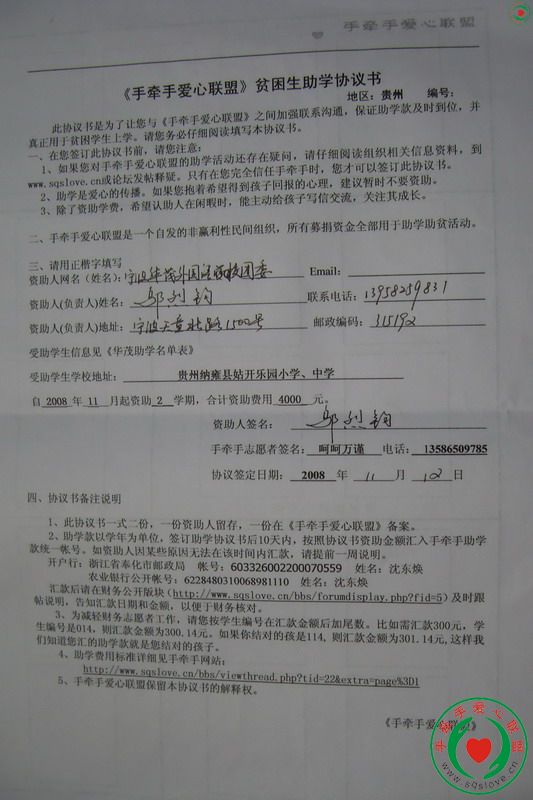 手牵手爱心联盟
《手牵手爱心联盟》贫困生助学协议书
地区：贵州 编号：
此协议书是为了让您与《手牵手爱心联盟》之间加强联系沟通，保证助学款及时到位，并
真正用于贫困学生上学。请您务必仔细阅读填写本协议书。
一、在您签订此协议书前，请您注意：
1、如果您对手牵手爱心联盟的助学活动还存在疑问，请仔细阅读组织相关信息资料，到
www.sqslove.cn或论坛发帖释疑。只有在您完全信任手牵手时，您才可以签订此协议书。
2、助学是爱心的传播。如果您抱着希望得到孩子回报的心理，建议暂时不要资助。
3、除了资助学费，希望认助人在闲暇时，能主动给孩子写信交流，关注其成长。
二、手牵手爱心联盟是一个自发的非赢利性民间组织，所有募捐资金全部用于助学助贫活动。
三、请用正楷字填写
资助人网名（姓名）：宁波华茂外国语学校团委 Email：
资助人(负责人)姓名：邬烈钧 联系电话：13958259831
资助人(负责人)地址：宁波天童北路1500号 邮政编码：315192
受助学生信息见《华茂助学名单表》
受助学生学校地址： 贵州纳雍县姑开乐园小学、中学
自 2008 年 11 月起资助 2 学期，合计资助费用 4000 元。
资助人签名：邬烈钧
手牵手志愿者签名：呵呵万谨 电话：13586509785
协议签定日期： 2008 年 11 月 12 日
四、协议书备注说明
1、此协议书一式二份，一份资助人留存，一份在《手牵手爱心联盟》备案。
2、助学款以学年为单位，签订助学协议书后10天内，按照协议书资助金额汇入手牵手助学
款统一帐号。如资助人因某些原因无法在该时间内汇款，请提前一周说明。
开户行：浙江省奉化市邮政局 帐号：603326002200070559 姓名：沈东焕
农业银行公开帐号：6228480310068981110 姓名：沈东焕
汇款后请在财务公开版块（http://www.sqslove.cn/bbs/forumdisplay.php?fid=5）及时跟
帖说明，告知汇款日期和金额，以便于财务核对。
3、为减轻财务志愿者工作，请您按学生编号在汇款金额后加尾数。比如需汇款300元，学
生编号是014，则汇款金额为300.14元。如果你结对的孩是114，则汇款金额为301.14元，这样我
们知道您汇的助学款就是您结对的孩子。
4、助学费用标准详细见手牵手网站：
http://www.sqslove.cn/bbs/viewthread.php?tid=22&extra=page%3D1
5、手牵手爱心联盟保留本协议书的解释权。
《手牵手爱心联盟》
手牵手爱心联盟
www.sqslove.cn